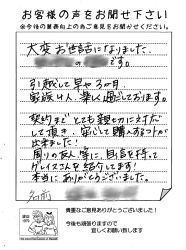 お客様の声をお聞せ下さい
※今後の業務向上の為ご意見をお聞かせください。
大変お世話になりました、
の です。
引越して早や3か月、
家族4人、楽しく過ごしております。
契約までとても親切に対応
して頂き、安心して購入することが
出来ました!
周りの友人等に、自信を持って
さんを紹介します!
本当にありがとうございました。
名前
貴重なご意見ありがとうございました!
今後も頑張りますので
宜しくお願い致します